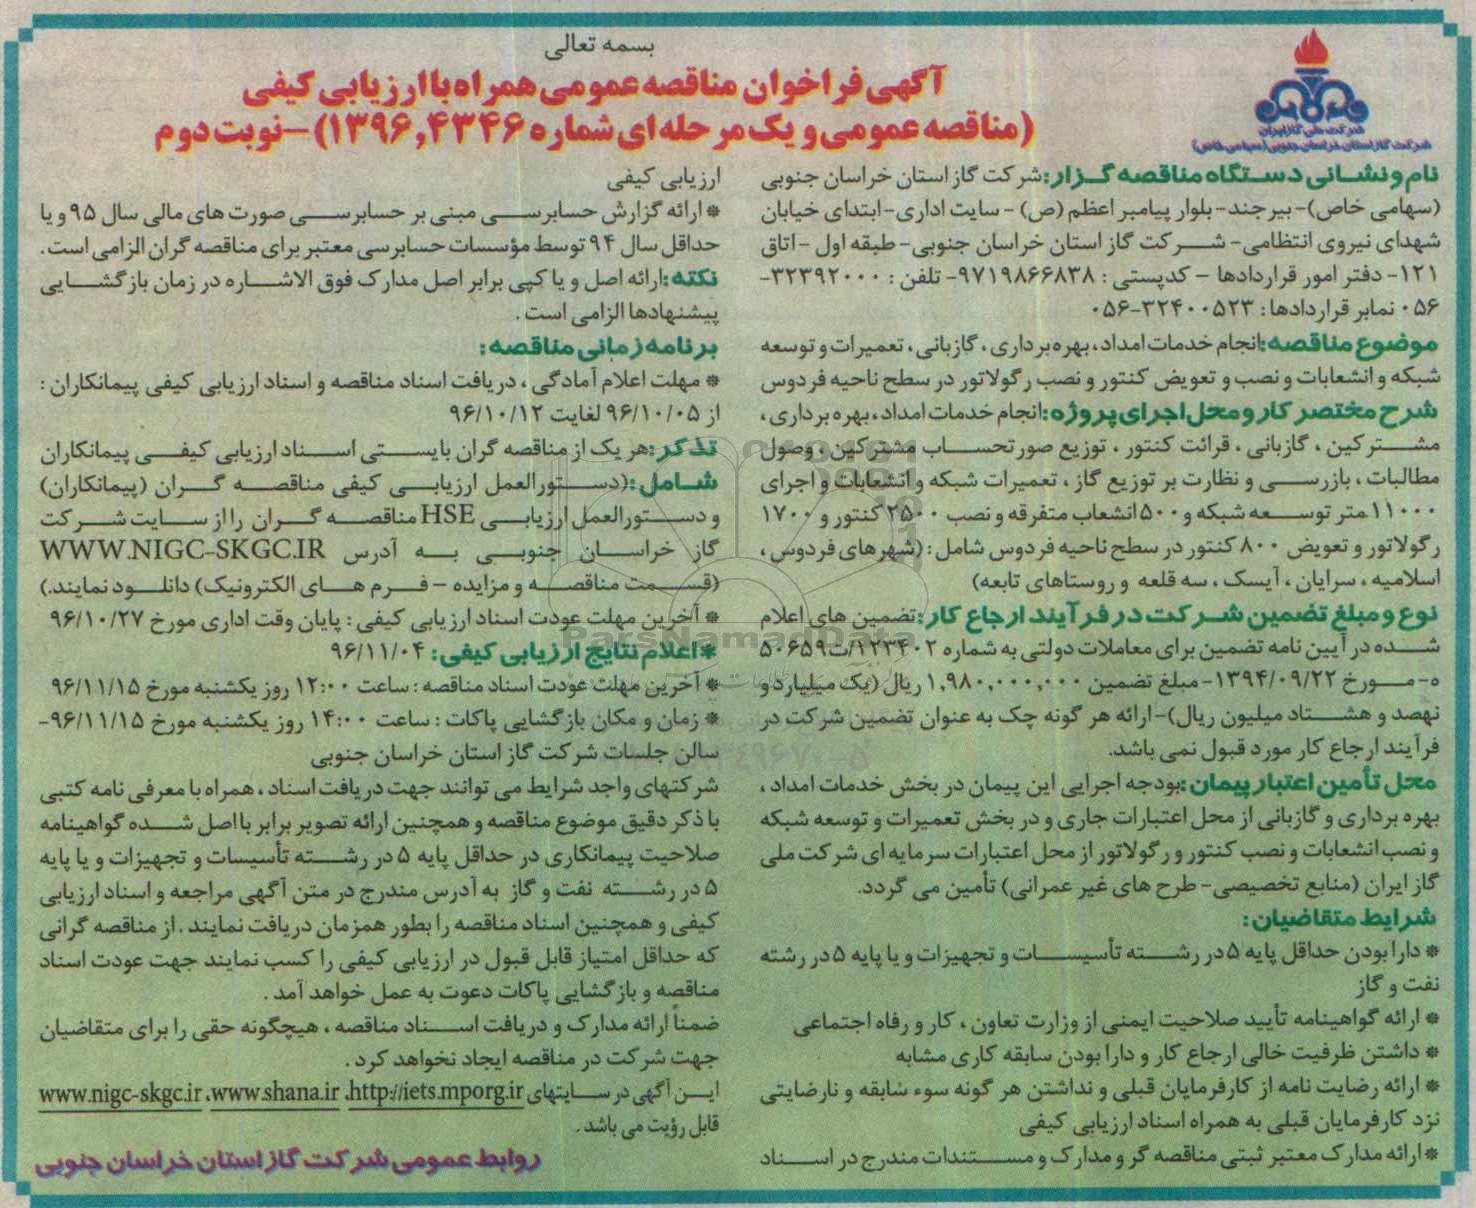 بسمه تعالی
آگهی فراخوان مناقصه عمومی همراه با ارزیابی کیفی
(مناقصه عمومی و یک مرحله ای شماره ۱۳۹۶,۴۳۴۶) –نوبت دوم
شرکت ملی گاز ایران
شرکت گاز استان خراسان جنوبی (سهامی خاص)
نام و نشانی دستگاه مناقصه گزار: شرکت گاز استان خراسان جنوبی
(سهامی خاص)- بیرجند- بلوار پیامبر اعظم (ص) - سایت اداری- ابتدای خیابان
شهدای نیروی انتظامی- شرکت گاز استان خراسان جنوبی- طبقه اول -اتاق
۱۲۱- دفتر امور قراردادها – کدپستی : ۹۷۱۹۸۶۶۸۳۸- تلفن : ۳۲۳۹۲۰۰۰-
۰۵۶ نمابر قراردادها: ۳۲۴۰۰۵۲۳-۰۵۶
موضوع مناقصه: انجام خدمات امداد، بهره برداری ، گازبانی ، تعمیرات و توسعه
شبکه و انشعابات و نصب و تعویض کنتور و نصب رگولاتور در سطح ناحیه فردوس
شرح مختصر کار و محل اجرای پروژه: انجام خدمات امداد ، بهره برداری ،
مشترکین ، گازبانی ، قرائت کنتور ، توزیع صورتحساب مشترکین ، وصول
مطالبات ، بازرسی و نظارت بر توزیع گاز ، تعمیرات شبکه و انشعابات و اجرای
۱۱۰۰۰ متر توسعه شبکه و ۵۰۰ انشعاب متفرقه و نصب ۲۵۰۰ کنتور و ۱۷۰۰
رگولاتور و تعویض ۸۰۰ کنتور در سطح ناحیه فردوس شامل : (شهرهای فردوس ،
اسلامیه ، سرایان ، آیسک ، سه قلعه و روستاهای تابعه)
نوع و مبلغ تضمین شرکت در فرآیند ارجاع کار: تضمین های اعلام
شده در آیین نامه تضمین برای معاملات دولتی به شماره ۱۲۳۴۰۲/ت۵۰۶۵۹
ه- مورخ ۱۳۹۴/۰۹/۲۲- مبلغ تضمین ۱,۹۸۰,۰۰۰,۰۰۰ ریال (یک میلیارد و
نهصد و هشتاد میلیون ریال)- ارائه هر گونه چک به عنوان تضمین شرکت در
فرآیند ارجاع کار مورد قبول نمی باشد.
محل تأمین اعتبار پیمان: بودجه اجرایی این پیمان در بخش خدمات امداد ،
بهره برداری و گازبانی از محل اعتبارات جاری و در بخش تعمیرات و توسعه شبکه
و نصب انشعابات و نصب کنتور و رگولاتور از محل اعتبارات سرمایه ای شرکت ملی
گاز ایران (منابع تخصیصی- طرح های غیر عمرانی) تأمین می گردد.
شرایط متقاضیان :
* دارا بودن حداقل پایه ۵ در رشته تأسیسات و تجهیزات و یا پایه ۵ در رشته
نفت و گاز
* ارائه گواهینامه تأیید صلاحیت ایمنی از وزارت تعاون ، کار و رفاه اجتماعی
* داشتن ظرفیت خالی ارجاع کار و دارا بودن سابقه کاری مشابه
* ارائه رضایت نامه از کارفرمایان قبلی و نداشتن هر گونه سوء سابقه و نارضایتی
نزد کارفرمایان قبلی به همراه اسناد ارزیابی کیفی
* ارائه مدارک معتبر ثبتی مناقصه گر و مدارک و مستندات مندرج در اسناد
ارزیابی کیفی
* ارائه گزارش حسابرسی مبنی بر حسابرسی صورت های مالی سال ۹۵ و یا
حداقل سال ۹۴ توسط مؤسسات حسابرسی معتبر برای مناقصه گران الزامی است .
نکته: ارائه اصل و یا کپی برابر اصل مدارک فوق الاشاره در زمان بازگشایی
پیشنهادها الزامی است .
برنامه زمانی مناقصه :
* مهلت اعلام آمادگی ، دریافت اسناد مناقصه و اسناد ارزیابی کیفی پیمانکاران :
از ۹۶/۱۰/۰۵ لغایت ۹۶/۱۰/۱۲
تذکر: هر یک از مناقصه گران بایستی اسناد ارزیابی کیفی پیمانکاران
شامل: (دستورالعمل ارزیابی کیفی مناقصه گران (پیمانکاران)
و دستورالعمل ارزیابی HSE مناقصه گران را از سایت شرکت
گاز خراسان جنوبی به آدرس WWW.NIGC-SKGC.IR
(قسمت مناقصه و مزایده – فرم های الکترونیک) دانلود نمایند.)
* آخرین مهلت عودت اسناد ارزیابی کیفی : پایان وقت اداری مورخ ۹۶/۱۰/۲۷
* اعلام نتایج ارزیابی کیفی : ۹۶/۱۱/۰۴
* آخرین مهلت عودت اسناد مناقصه : ساعت ۱۲:۰۰ روز یکشنبه مورخ ۹۶/۱۱/۱۵
* زمان و مکان بازگشایی پاکات : ساعت ۱۴:۰۰ روز یکشنبه مورخ ۹۶/۱۱/۱۵-
سالن جلسات شرکت گاز استان خراسان جنوبی
شرکتهای واجد شرایط می توانند جهت دریافت اسناد ، همراه با معرفی نامه کتبی
با ذکر دقیق موضوع مناقصه و همچنین ارائه تصویر برابر با اصل شده گواهینامه
صلاحیت پیمانکاری در حداقل پایه ۵ در رشته تأسیسات و تجهیزات و یا پایه
۵ در رشته نفت و گاز به آدرس مندرج در متن آگهی مراجعه و اسناد ارزیابی
کیفی و همچنین اسناد مناقصه را بطور همزمان دریافت نمایند . از مناقصه گرانی
که حداقل امتیاز قابل قبول در ارزیابی کیفی را کسب نمایند جهت عودت اسناد
مناقصه و بازگشایی پاکات دعوت به عمل خواهد آمد .
ضمناً ارائه مدارک و دریافت اسناد مناقصه ، هیچگونه حقی را برای متقاضیان
جهت شرکت در مناقصه ایجاد نخواهد کرد .
این آگهی در سایتهای http://iets.mporg.ir ،www.shana.ir ،www.nigc-skgc.ir
قابل رؤیت می باشد .
روابط عمومی شرکت گاز استان خراسان جنوبی
ParsNamadData